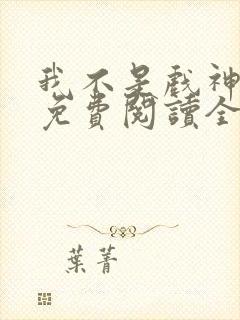 我不是戲神
免費閱讀全
葉菁